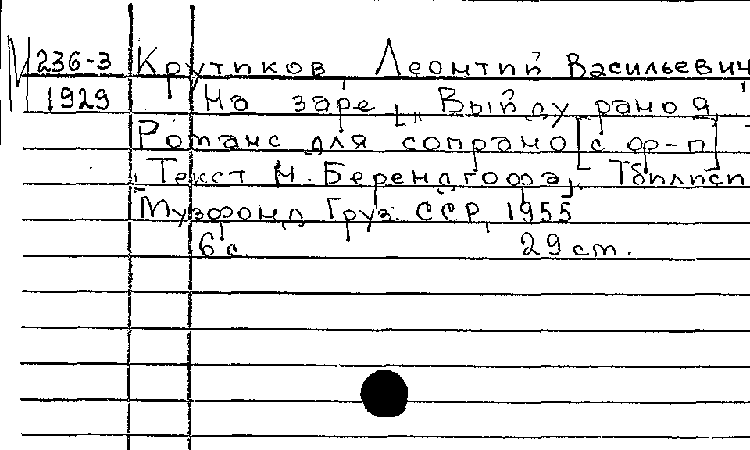 М 236-3 Крутиков, Леонтий Васильевич
1929 На заре. [„Выйду рано я"
Романс для сопрано [с ф-п]
Текст М. Берендгофа]. Тбилиси
Музфонд Груз. ССР, 1955
6 с. 29 см.